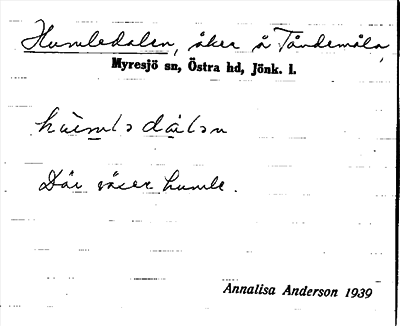 Humledalen, åker å Tåndemåla,
Myresjö sn, Östra hd, Jönk. l.
Där växer humle.
Annalisa Anderson 1939